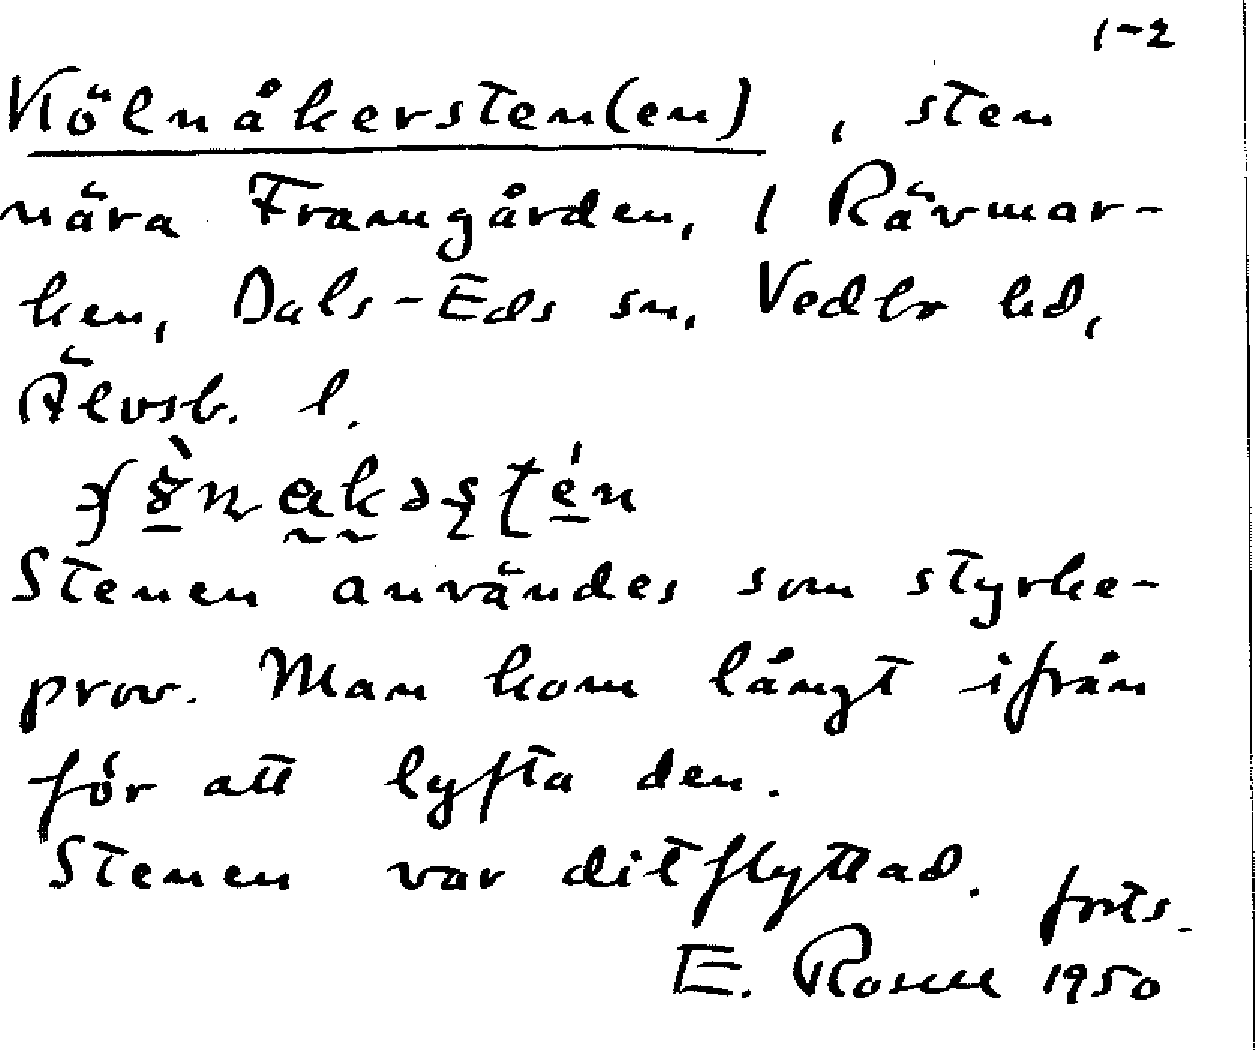 1-2
Kölnåkersten(en), sten
nära Framgården, 1 Rävmar-
ken, Dals-Eds sn, Vedbo hd,
Älvsb. l.
Stenen användes som styrke-
prov. Man kom långt ifrån
för att lyfta den.
Stenen var ditflyttad. forts.
E. Rosell 1950